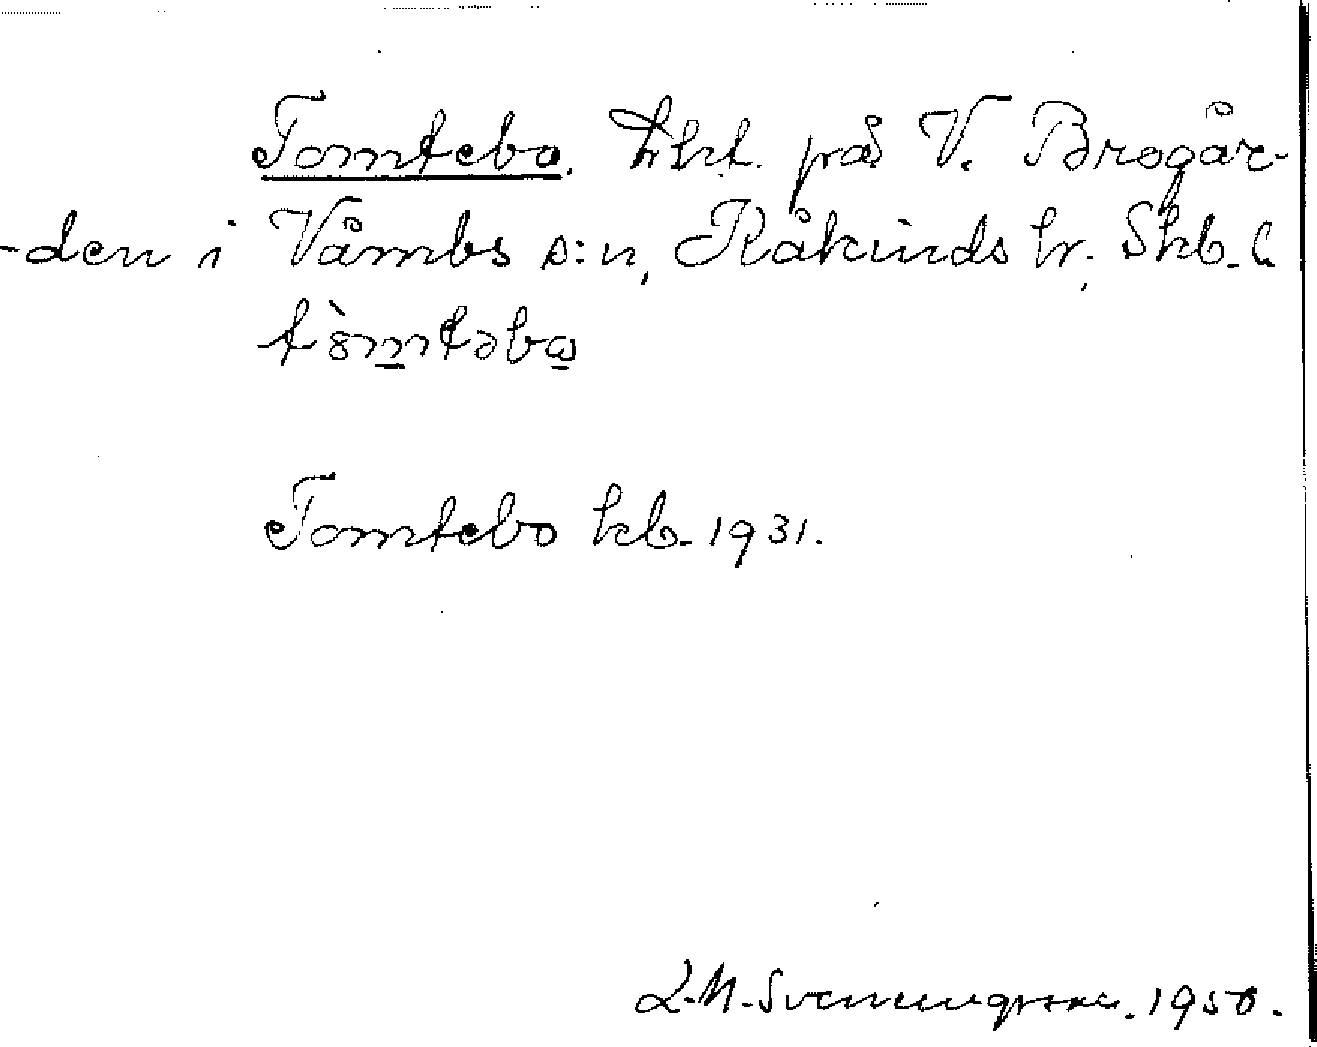 Tomtebo. Lht. på V. Brogår-
-den i Våmbs s:n, Kåkinds hr. Skb. l
tòmtəbω
Tomtebo kb. 1931.
L.M. Svenungsson. 1950.